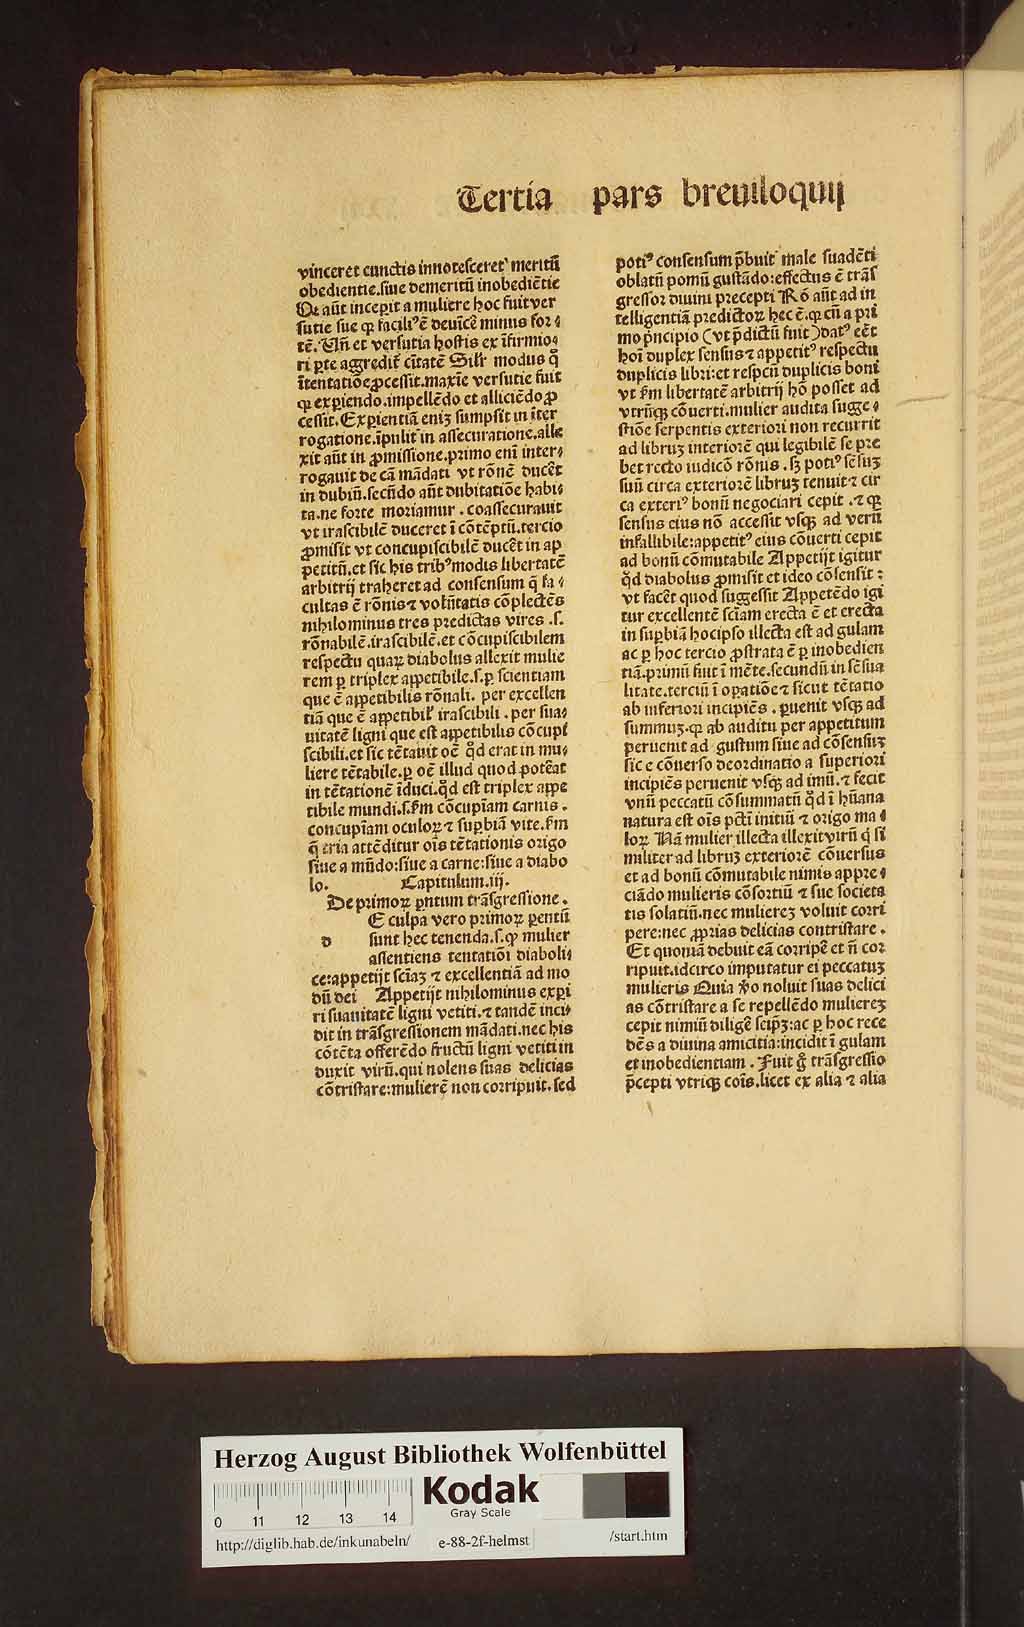 Tertia pars breuiloquij
vinceret cunctis innotesceret meritū
obedientie.siue demeritū inobediētie
Qꝛ aūt incepit a muliere hoc fuit ver
sutie sue qꝛ faciliꝰ ē deuīcē minus for⸗
tē. Uñ et versutia hostis ex īfirmio⸗
ri ꝑte aggredit̄ cītatē Silꝉr modus q̊
ītentatiōe ꝓcessit.maxīe versutie fuit
qꝛ exꝑiendo.impellēdo et alliciēdo ꝓ
cessit. Exꝑientiā eniꝫ sumpsit in īter
rogatione.īpulit in assecuratione.alle
xit aūt in ꝓmissione.primo enī inter⸗
rogauit de cā mādati vt rōnē ducēt
in dubiū.secūdo aūt dubitatiōe habi⸗
ta.ne forte moriamur.coassecurauit
vt irascibilē duceret ī cōtēptū.tercio
ꝓmisit vt concupiscibilē ducēt in ap
petitū.et sic his tribꝰ modis libertatē
arbitrij traheret ad consensum q̄ fa⸗
cultas ē rōnis ⁊ volūtatis cōplectēs
nihilominus tres predictas vires .s.
rōnabilē.irascibilē.et cōcupiscibilem
respectu quaꝝ diabolus allexit mulie
rem ꝑ triplex appetibile.s.ꝑ scientiam
que ē appetibilis rōnali. per excellen
tiā que ē appetibilꝉ irascibili.per sua⸗
uitatē ligni que est appetibilis cōcupi
scibili.et sic tētauit oē q̊d erat in mu⸗
liere tētabile.ꝑ oē illud quod potēat
in tētationē īduci.q̊d est triplex appe
tibile mundi.s.ẜm cōcupīam carnis.
concupīam oculoꝝ ⁊ suꝑbiā vite.ẜm
q̄ tria attēditur oīs tētationis origo
siue a mūdo:siue a carne:siue a diabo
lo. Capitulum.iij.
De primoꝝ ꝑntum trāsgressione.
E culpa vero primoꝝ ꝑentū
d sunt hec tenenda.s.qꝙ mulier
assentiens tentatiōi diaboli⸗
ce:appetijt scīaꝫ ⁊ excellentiā ad mo
dū dei Appetijt nihilominus exꝑi
ri suauitatē ligni vetiti.⁊ tandē inci⸗
dit in trāsgressionem mādati.nec his
cōtēta offerēdo fructū ligni vetiti in
duxit virū.qui nolens suas delicias
cōtristare:mulierē non corripuit.sed
potiꝰ consensum p̄buit male suadēti
oblatū pomū gustādo:effectus ē trāſ
gressor diuini precepti Rō aūt ad in
telligentiā predictoꝝ hec ē.qꝛ cū a pri
mo p̄ncipio (vt p̄dictū fuit) datꝰ eēt
hoī duplex sensus ⁊ appetitꝰ respectu
duplicis libri:et respcū duplicis boni
vt ẜm libertatē arbitrij hō posset ad
vtrūqꝫ cōuerti.mulier audita sugge⸗
stiōe serpentis exteriori non recurrit
ad libruꝫ interiorē qui legibilē se pre
bet recto iudicō rōnis.sꝫ potiꝰ sēsuꝫ
suū circa exteriorē libruꝫ tenuit ⁊ cir
ca exteriꝰ bonū negociari cepit .⁊ qꝛ
sensus eius nō accessit vsqꝫ ad verū
infallibile:appetitꝰ eius cōuerti cepit
ad bonū cōmutabile Appetijt igitur
q̊d diabolus ꝓmisit et ideo cōsensit:
vt facēt quod suggessit Appetēdo igi
tur excellentē scīam erecta ē et erecta
in suꝑbiā hocipso illecta est ad gulam
ac ꝑ hoc tercio ꝓstrata ē ꝑ inobedien
tiā.primū fuit ī mēte.secundū in sēsua
litate.terciū ī oꝑatiōe ⁊ sicut tētatio
ab inferiori incipiēs.ꝑuenit vsqꝫ ad
summuꝫ.qꝛ ab auditu per appetitum
peruenit ad gustum siue ad cōsensuꝫ
sic e cōuerso deordinatio a superiori
incipiēs peruenit vsqꝫ ad imū.⁊ fecit
vnū peccatū cōsummatū q̊d ī hūana
natura est oīs pctī initiū ⁊ origo ma⸗
loꝝ Nā mulier illecta illexit virū q̇ si
militer ad libruꝫ exteriorē cōuersus
et ad bonū cōmutabile nimis appre⸗
ciādo mulieris cōsortiū ⁊ sue societa
tis solatiū.nec muliereꝫ voluit corri
pere:nec ꝓprias delicias contristare.
Et quoniā debuit eā corripē et ñ cor
ripuit.idcirco imputatur ei peccatuꝫ
mulieris Quia ꝟo noluit suas delici
as cōtristare a se repellēdo muliereꝫ
cepit nimiū diligē seipꝫ:ac ꝑ hoc rece
dēs a diuina amicitia:incidit ī gulam
et inobedientiam. Fuit g̊ trāsgressio
p̄cepti vtriqꝫ coīs.licet ex alia ⁊ alia
Herzog August Bibliothek Wolfenbüttel
0 11 12 13 14
Kodak
Gray Scale
http://diglib.hab.de/inkunabeln/ e-88-2f-helmst /start.htm